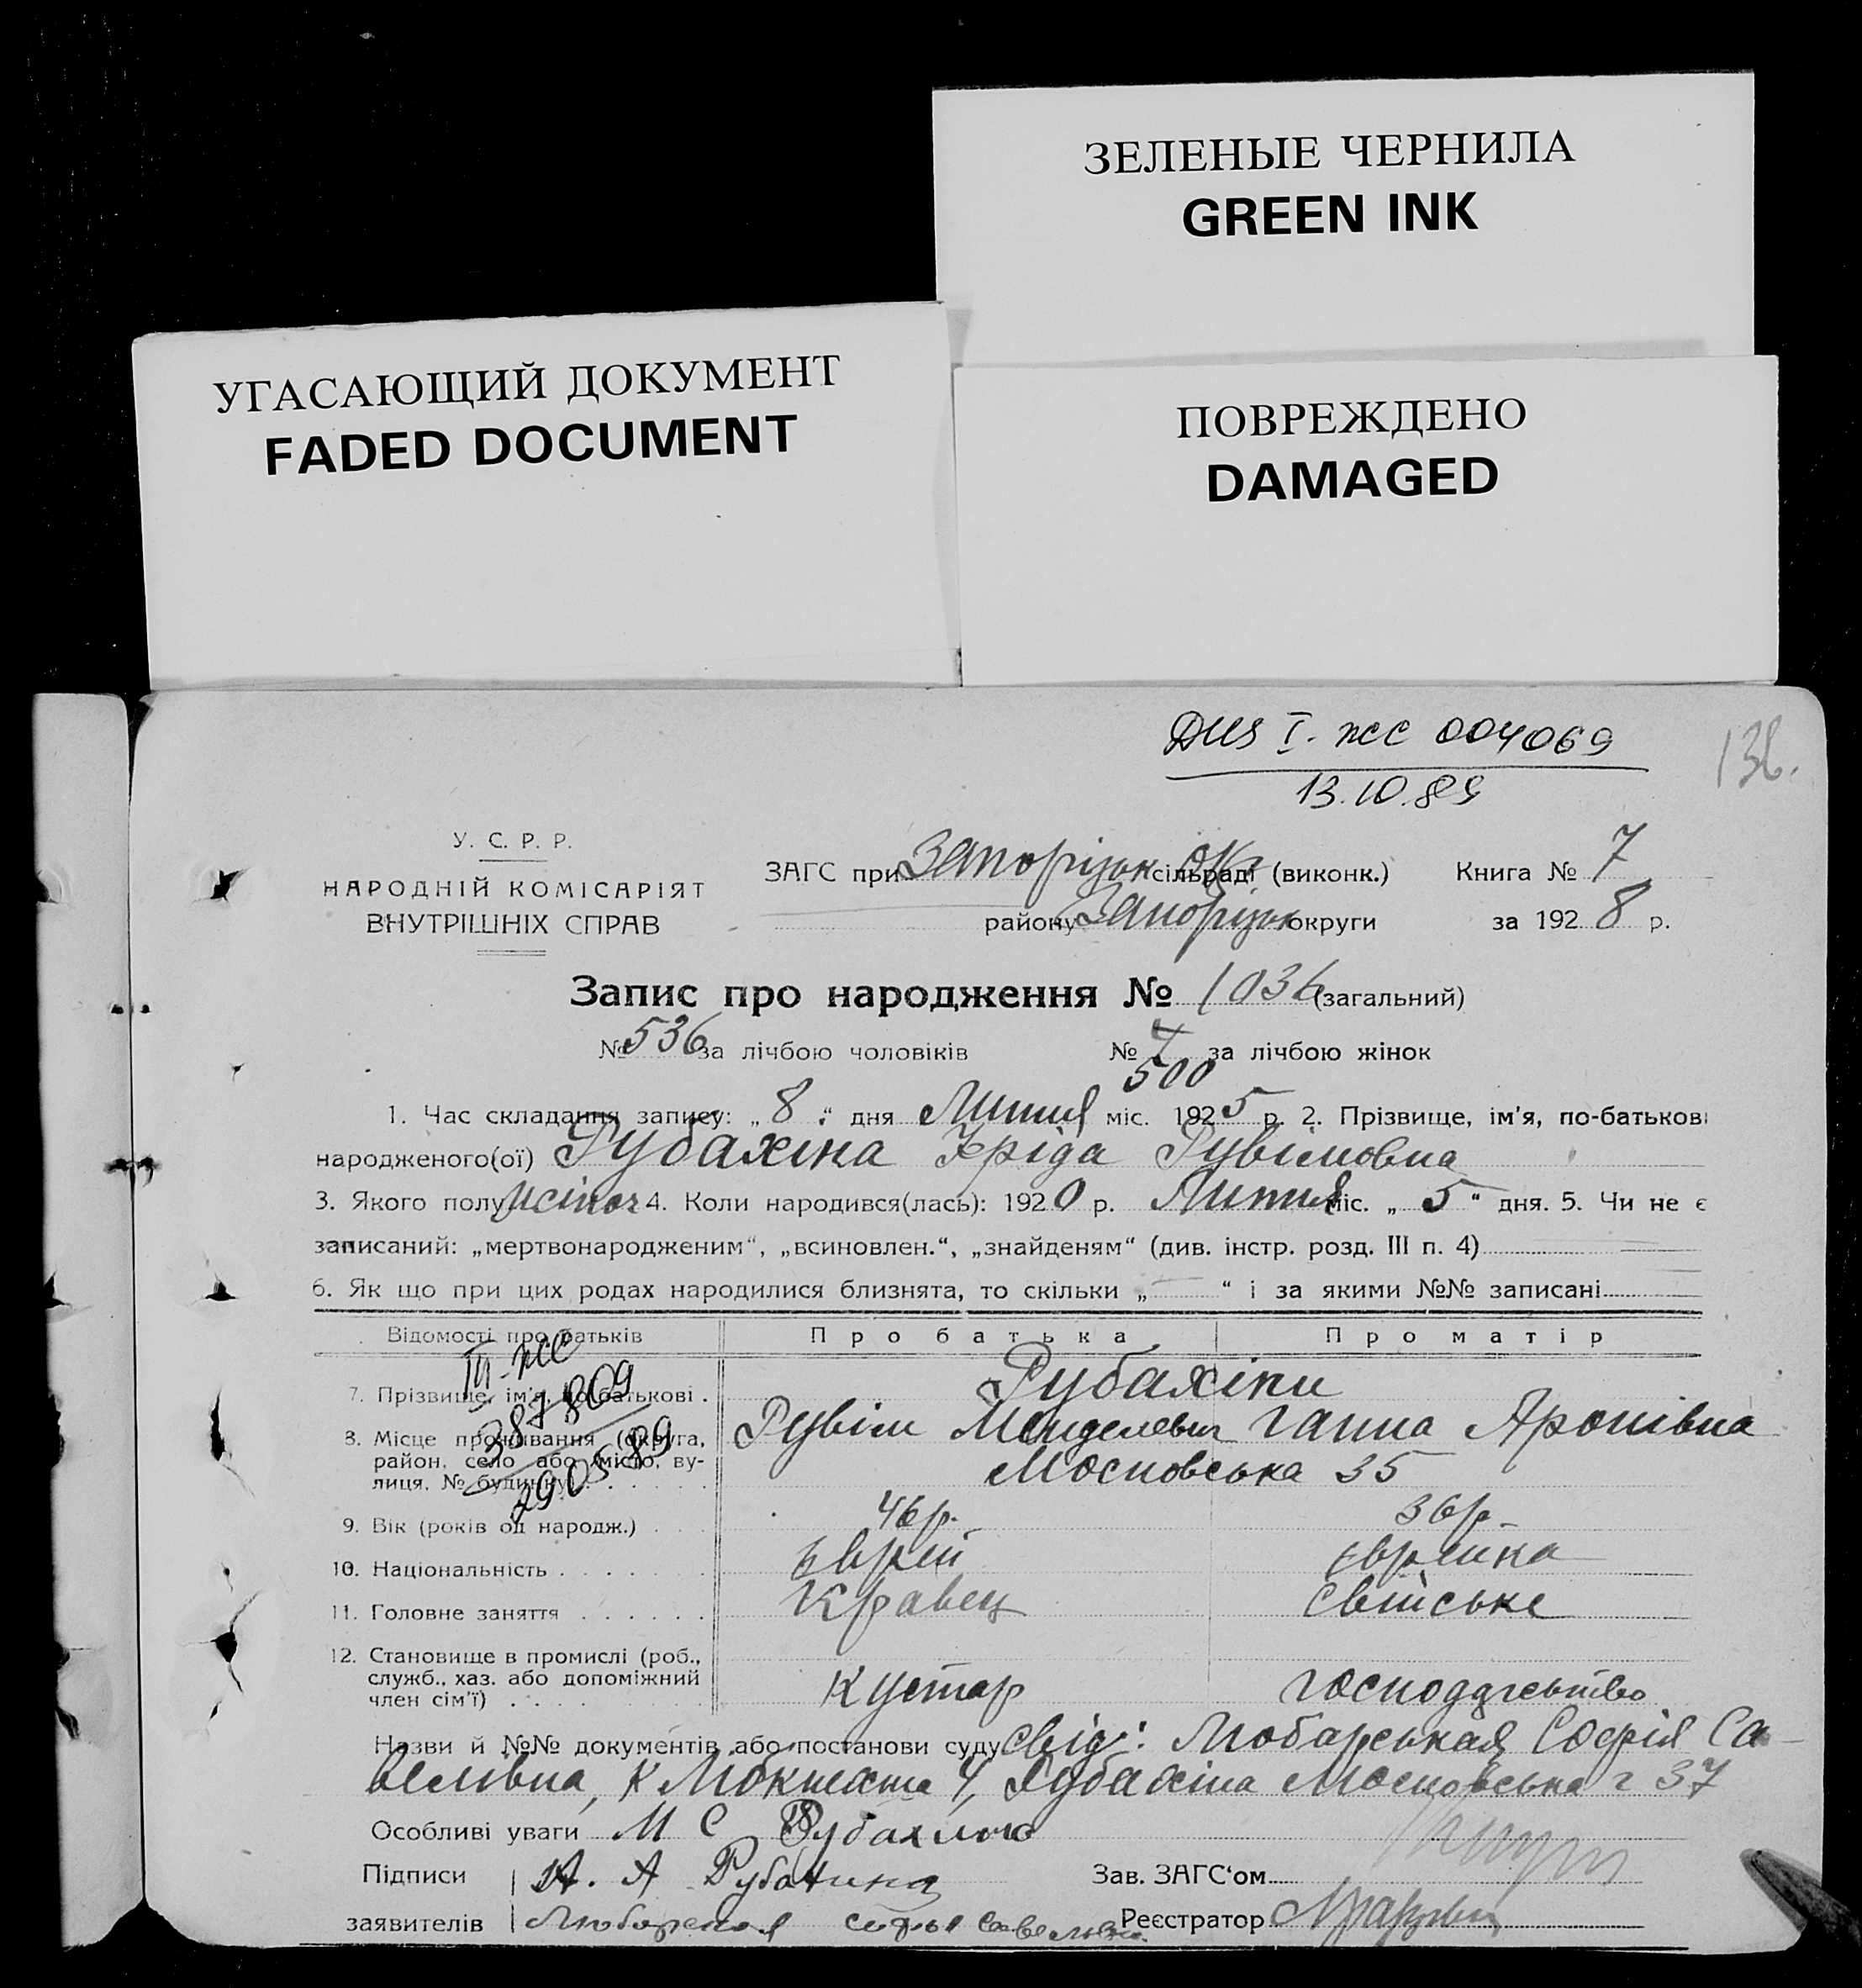 ЗЕЛЕНЫЕ ЧЕРНИЛА
GREEN INK
УГАСАЮЩИЙ ДОКУМЕНТ
FADED DOCUMENT
ПОВРЕЖДЕНО
DAMAGED
I. ЖС 004069
13.10.89
138.
У. С. Р. Р.
НАРОДНІЙ КОМІСАРІЯТ
ВНУТРІШНІХ СПРАВ
ЗАГС при Запорізьк Окр сільраді (виконк.) Книга № 7
району Запорізьк округи за 192 8 р.
Запис про народження № 1036 (загальний)
№ 536 за лічбою чоловіків № 500 за лічбою жінок
1. Час складання запису: „ 8 “ дня Липня міс. 192 5 р. 2. Прізвище, ім'я, по-батькові
народженого(ої) Рубахіна Фріда Рувімовна
3. Якого полу жіноч 4. Коли народився(лась): 192 0 р. Липня міс. „ 5 “ дня. 5. Чи не є
записаний: „мертвонародженим“, „всиновлен.“, „знайденям“ (див. інстр. розд. III п. 4)
6. Як що при цих родах народилися близнята, то скільки „ “ і за якими №№ записані
Відомості про батьків Про батька Про матір
III-ЖС
387809
290589
7. Прізвище, ім'я, по-батькові . Рубахіни
Рувім Менделевич Ганна Яронівна
8. Місце проживання (округа,
район, село або місто, ву-
лиця, № будинку) . . . . . Московська 35
9. Вік (років од народж.) . . . 46р. 36р.
10. Національність . . . . . . . Єврей Єврейка
11. Головне заняття . . . . . . Кравець Свійське
12. Становище в промислі (роб.,
служб., хаз. або допоміжний
член сім'ї) . . . Кустар господарство
Назви й №№ документів або постанови суду Свід: Любарськая Софія Са-
велівна, К 4, Рубахіна Московська 37
Особливі уваги М С
Підписи А Рубахина Зав. ЗАГС'ом
заявителів Любарская Реєстратор